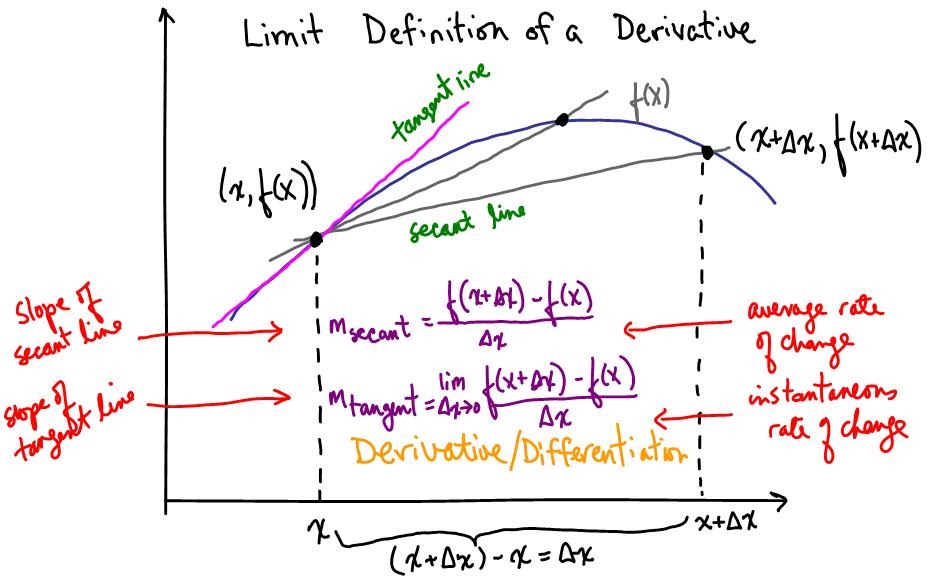 Limit Definition of a Derivative
tangent line
f(x)
(x+Δx, f(x+Δx)
(x, f(x))
secant line
Slope of
secant line
m secant = f(x+Δx) - f(x) / Δx
average rate
of change
slope of
tangent line
m tangent = lim Δx→0 f(x+Δx) - f(x) / Δx
instantaneous
rate of change
Derivative/Differentiation
x
x+Δx
(x+Δx) - x = Δx